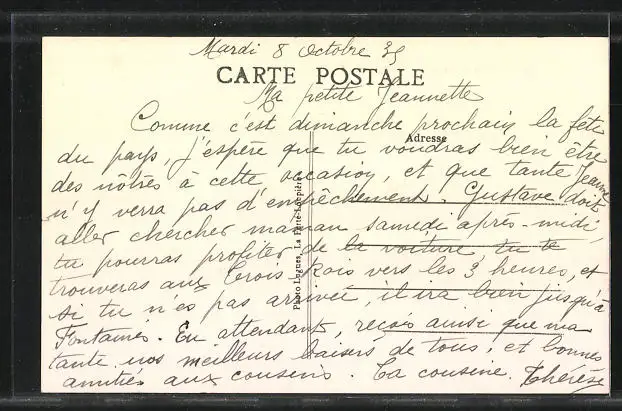 Mardi 8 Octobre 35
CARTE POSTALE
Ma petite Jeannette
Comme c'est dimanche prochain la fête
Adresse
du pays, j'espère que tu voudras bien être
des nôtres à cette occasion, et que tante Jeanne
n'y verra pas d'empêchement. Gustave doit
aller chercher maman samedi après-midi,
tu pourras profiter de la voiture tu te
trouveras aux Trois-Rois vers les 3 heures, et
si tu n'es pas arrivée, il ira bien jusqu'à
Fontaines. En attendant, reçois ainsi que ma
tante nos meilleurs baisers de tous, et bonnes
amitiés aux cousins. Ta cousine. Thérèse
Photo Lugues, La Ferté-Loupière